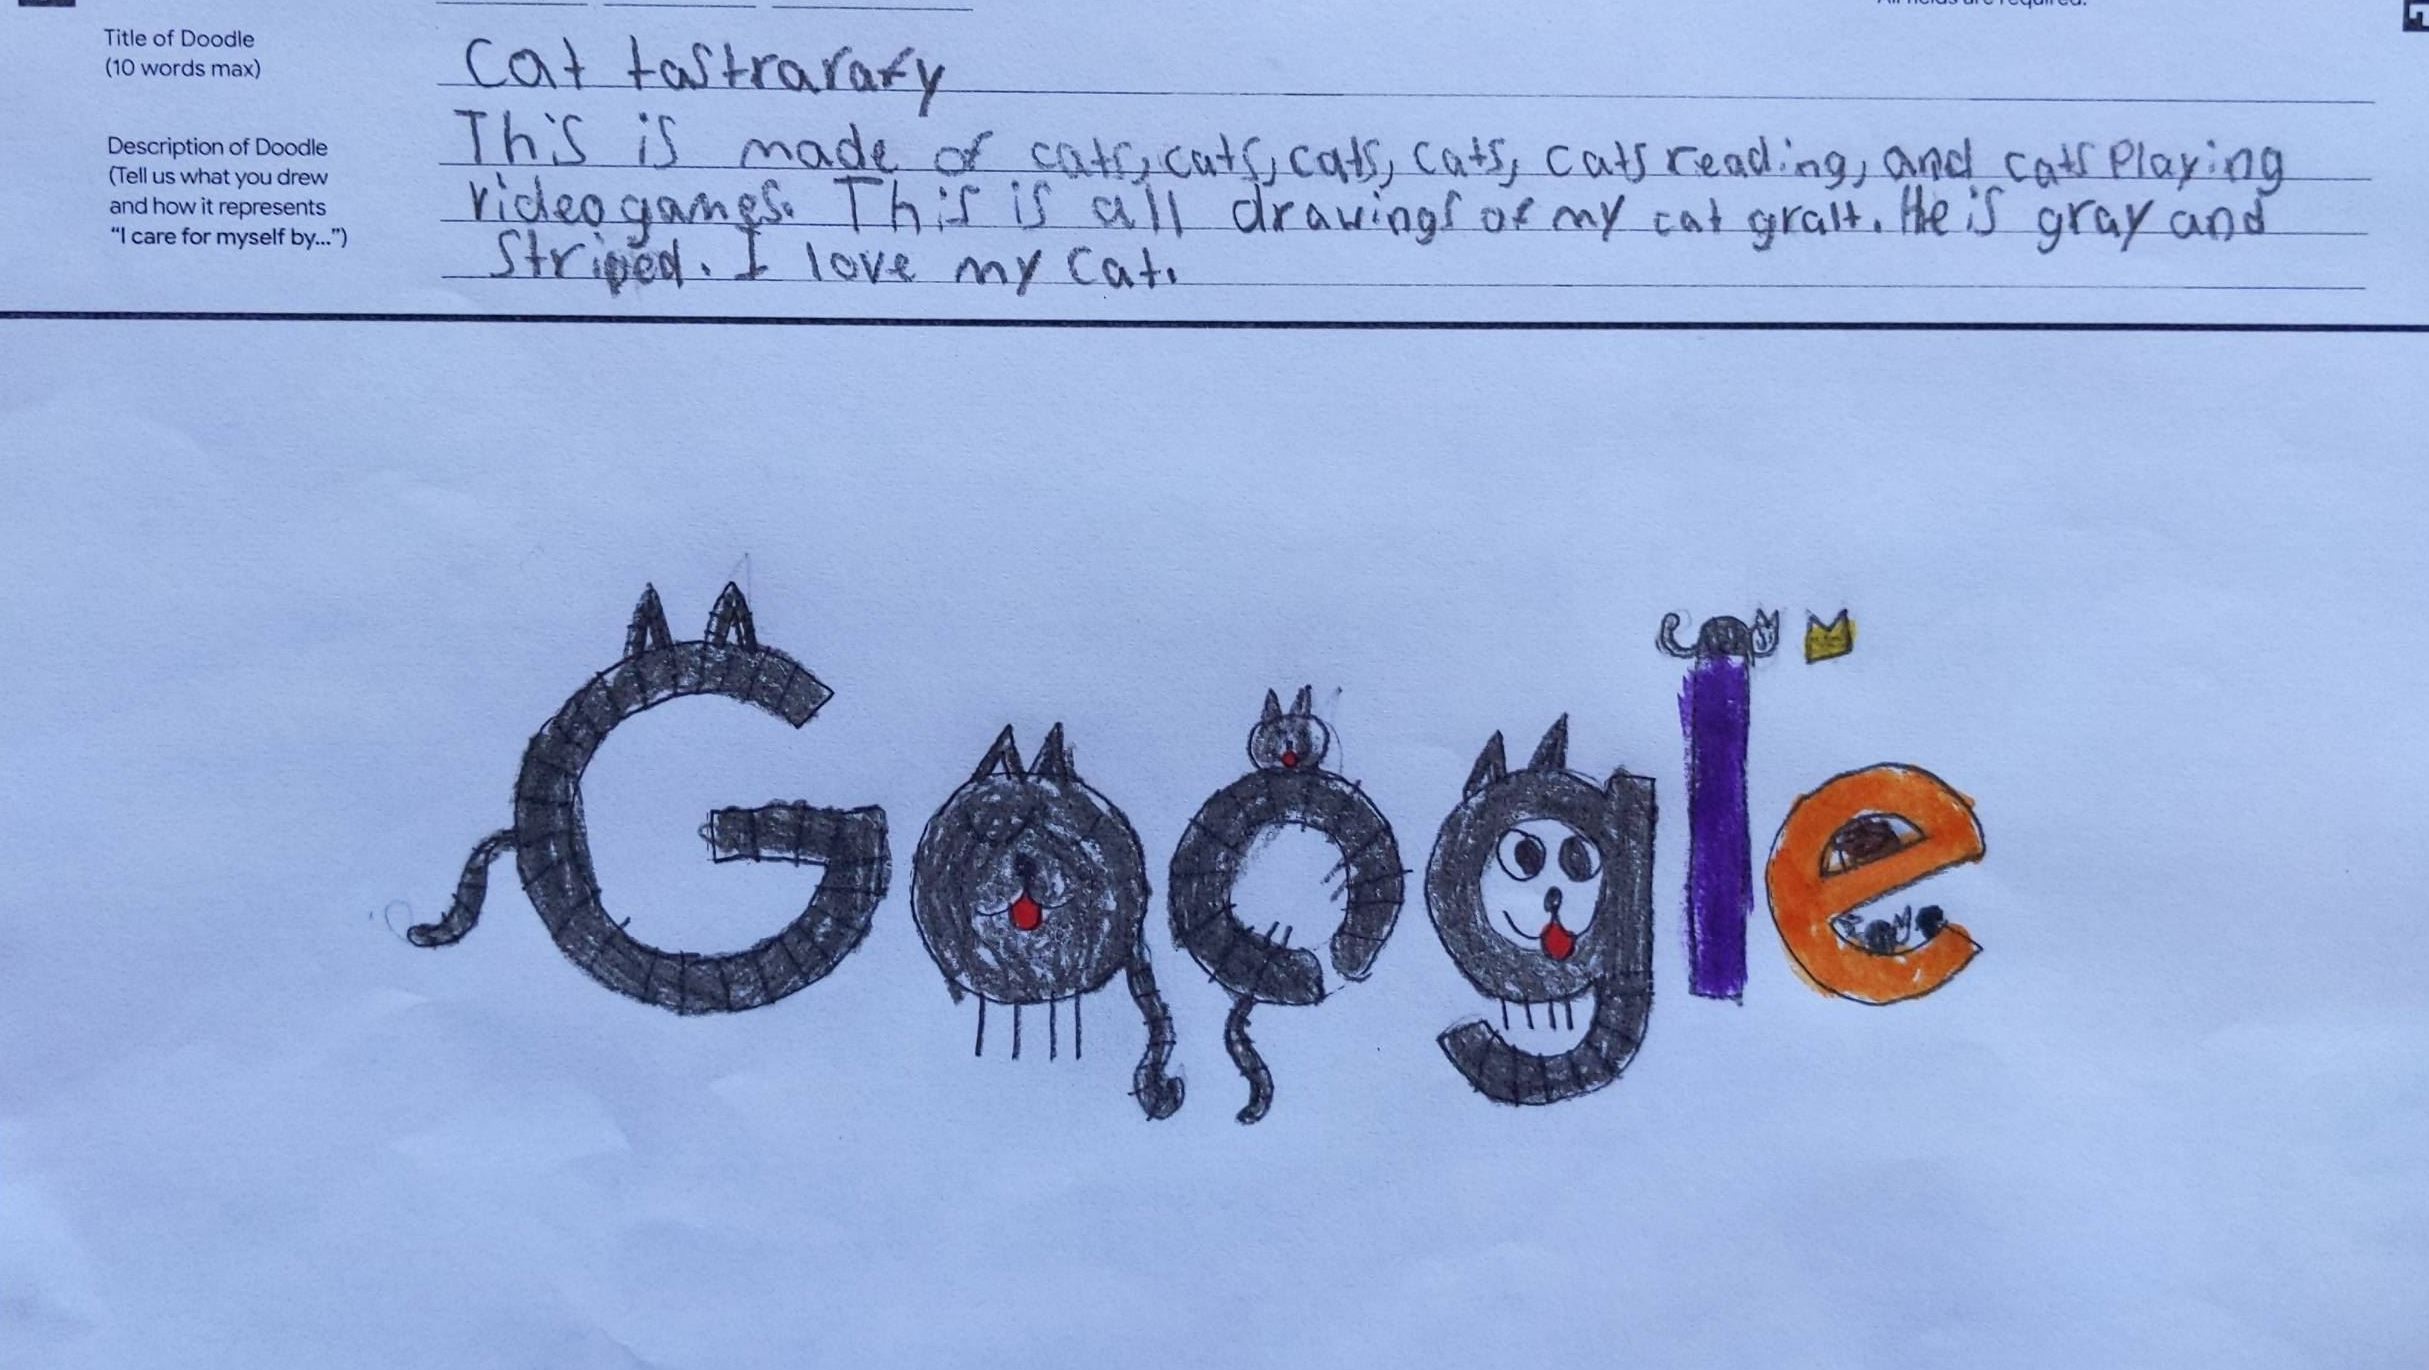 All fields are required.
Title of Doodle
(10 words max)
Cat tastrarafy
Description of Doodle
(Tell us what you drew
and how it represents
“I care for myself by...”)
This is made of cats, cats, cats, cats, cats reading, and cats Playing
videogames. This is all drawings of my cat gralt. He is gray and
Striped. I love my Cat.
Google